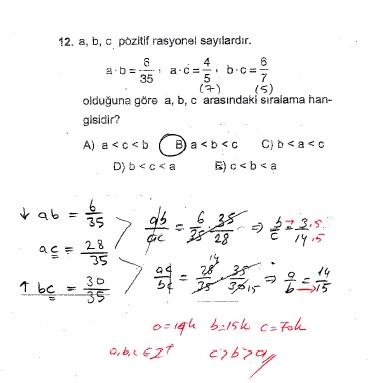 12. a, b, c pozitif rasyonel sayılardır.
a · b = 6/35, a · c = 4/5, b · c = 6/7
(7) (5)
olduğuna göre a, b, c arasındaki sıralama han-
gisidir?
A) a < c < b B) a < b < c C) b < a < c
D) b < c < a E) c < b < a
↓ ab = 6/35
ac = 28/35
↑ bc = 30/35
ab/ac = 6/35 · 35/28 ⇒ b/c = 3/14 .5 .5
ac/bc = 28/35 · 35/30 14 15 ⇒ a/b = 14/15
a=14k b=15k c=70k
a,b,c ∈ Z⁺ c>b>a